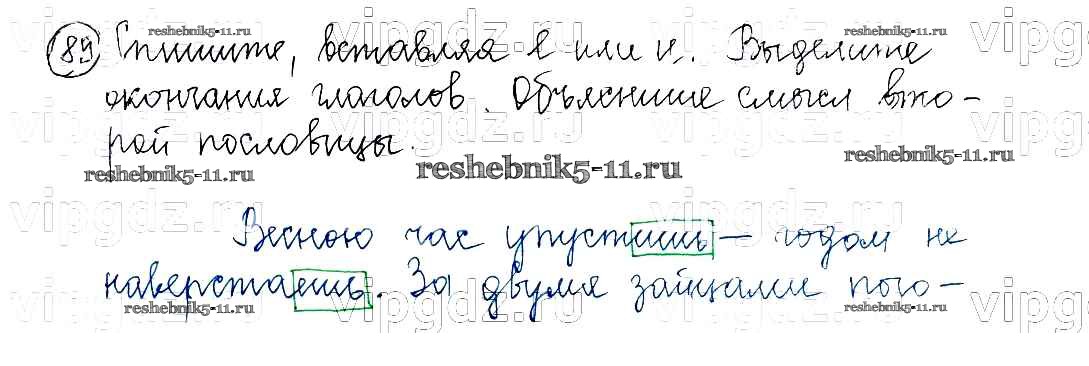 89 Спишите, вставляя е или и. Выделите
окончания глаголов. Объясните смысл вто-
рой пословицы.
Весною час упустишь – годом не
наверстаешь. За двумя зайцами пого-
reshebnik5-11.ru
reshebnik5-11.ru
reshebnik5-11.ru
reshebnik5-11.ru
reshebnik5-11.ru
reshebnik5-11.ru
reshebnik5-11.ru
vipgdz.ru